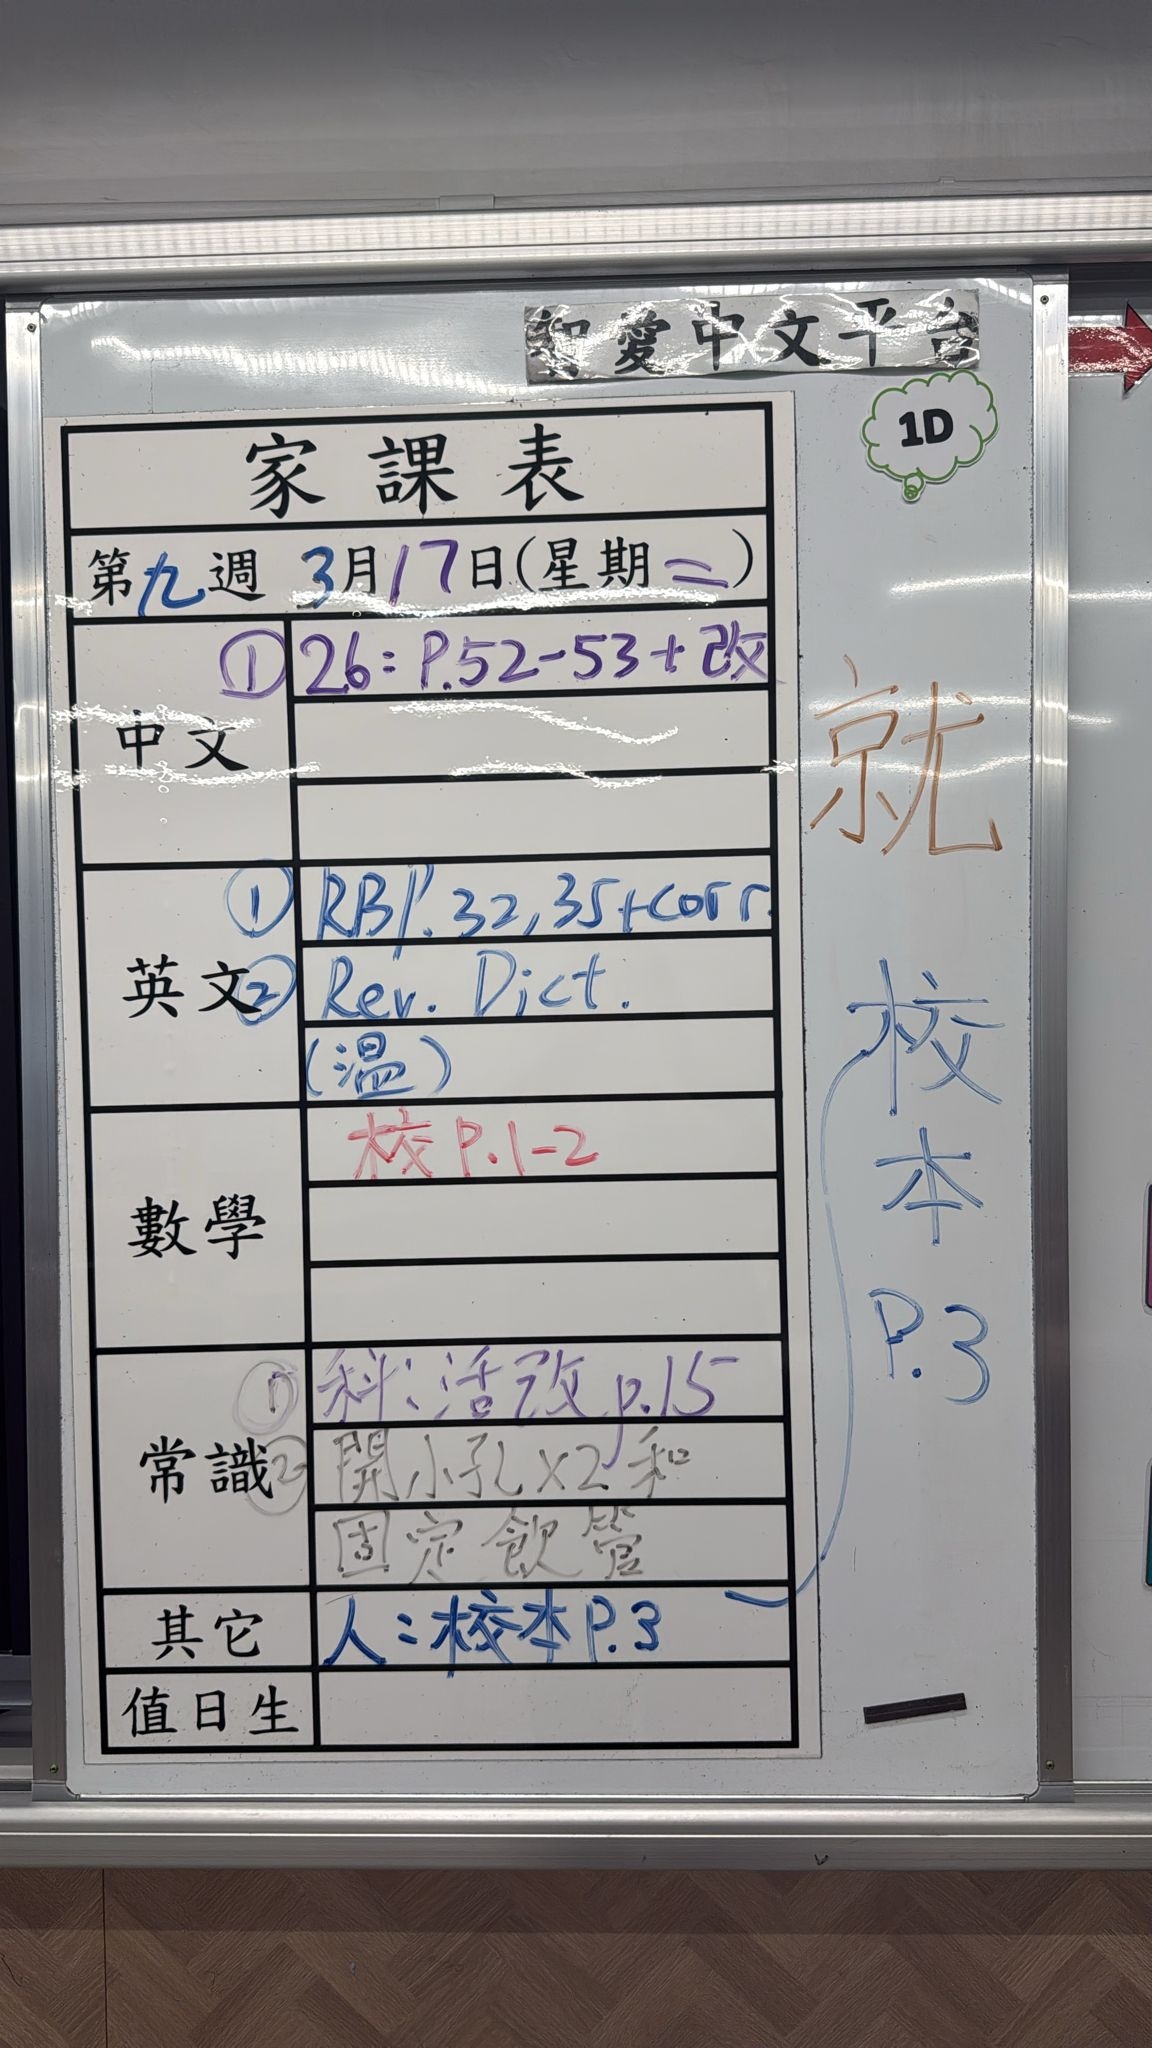 智愛中文平台
1D
家課表
第九週 3月17日(星期二)
中文
① 26: P.52-53+改
英文
① RB P.32,35+corr.
② Rev. Dict.
(溫)
數學
校 P.1-2
常識
① 科:活改 p.15
② 開小孔x2和
固定飲管
其它
人:校本P.3
值日生
就
校本
P.3